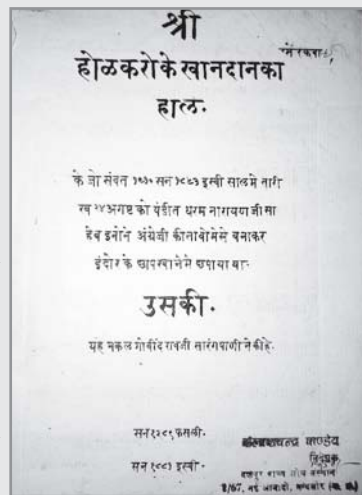 श्री
होळकरोके खानदानका
हाल.
के जो संवत १९१० सन १८५३ इस्वी सालमे तारी
ख २४ अगष्ट को पंडीत धरम नारायण जी सा
हेब इनोने अंग्रेजी कीताबोमेसे बनाकर
इंदोर के छापखानेमे छपाया था.
उसकी.
यह नकल गोवींदरावजी सारंगपाणी ने की हे.
सन १२८९ फसली.
सन १८८१ इस्वी.
पाण्डेय
निदेशक
दशपुर प्राच्य शोध संस्थान
8/67, नई आबादी, मन्दसौर (म. प्र.)